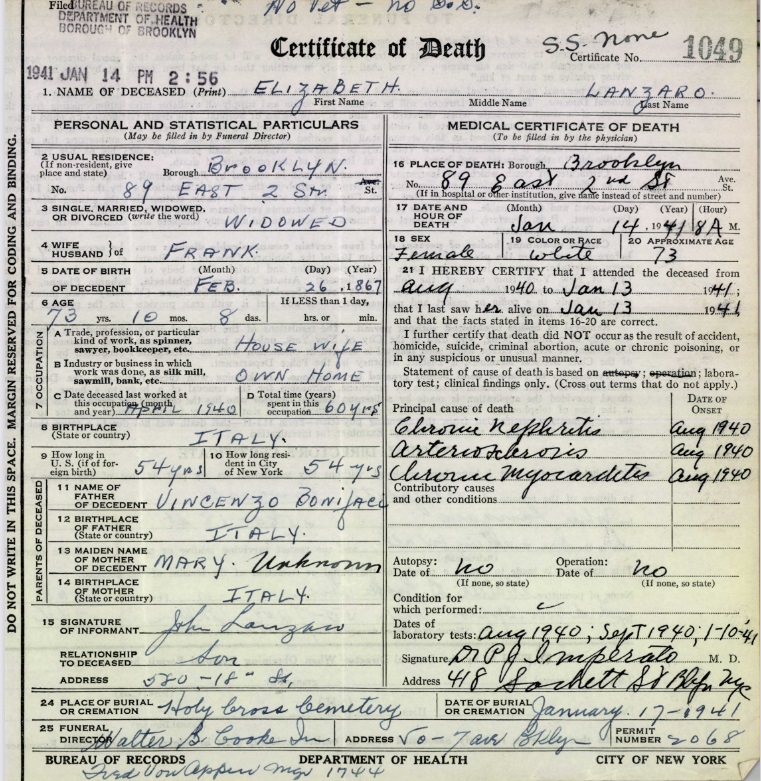 Filed BUREAU OF RECORDS
DEPARTMENT OF HEALTH
BOROUGH OF BROOKLYN
No Vet - no S.S.
Certificate of Death
S.S. none
Certificate No. 1049
1941 JAN 14 PM 2:56
1. NAME OF DECEASED (Print) ELIZABETH. LANZARO.
First Name Middle Name Last Name
PERSONAL AND STATISTICAL PARTICULARS
(May be filled in by Funeral Director)
2 USUAL RESIDENCE:
(If non-resident, give
place and state) Borough BROOKLYN.
No. 89 EAST 2 St. Ave. St.
3 SINGLE, MARRIED, WIDOWED,
OR DIVORCED (write the word) WIDOWED
4 WIFE
HUSBAND } of FRANK.
5 DATE OF BIRTH (Month) (Day) (Year)
OF DECEDENT FEB. 26, 1867
6 AGE If LESS than 1 day,
73 yrs. 10 mos. 8 das. hrs. or min.
7 OCCUPATION
A Trade, profession, or particular
kind of work, as spinner,
sawyer, bookkeeper, etc. HOUSE WIFE
B Industry or business in which
work was done, as silk mill,
sawmill, bank, etc. OWN HOME
C Date deceased last worked at
this occupation (month
and year) APRIL 1940
D Total time (years)
spent in this
occupation 60 yrs
8 BIRTHPLACE
(State or country) ITALY.
9 How long in
U. S. (if of for-
eign birth) 54 yrs
10 How long resi-
dent in City
of New York 54 yrs
PARENTS OF DECEASED
11 NAME OF
FATHER
OF DECEDENT VINCENZO BONIFACI
12 BIRTHPLACE
OF FATHER
(State or country) ITALY.
13 MAIDEN NAME
OF MOTHER
OF DECEDENT MARY. Unknown
14 BIRTHPLACE
OF MOTHER
(State or country) ITALY.
15 SIGNATURE
OF INFORMANT John Lanzaro
RELATIONSHIP
TO DECEASED Son
ADDRESS 520-18" St,
MEDICAL CERTIFICATE OF DEATH
(To be filled in by the physician)
16 PLACE OF DEATH: Borough Brooklyn
No. 89 East 2nd St Ave. St.
(If in hospital or other institution, give name instead of street and number)
17 DATE AND
HOUR OF
DEATH (Month) (Day) (Year) (Hour)
Jan 14, 1941 8 A M.
18 SEX 19 COLOR OR RACE 20 APPROXIMATE AGE
Female White 73
21 I HEREBY CERTIFY that I attended the deceased from
Aug 1940 to Jan 13 1941;
that I last saw her alive on Jan 13 1941
and that the facts stated in items 16-20 are correct.
I further certify that death did NOT occur as the result of accident,
homicide, suicide, criminal abortion, acute or chronic poisoning, or
in any suspicious or unusual manner.
Statement of cause of death is based on autopsy; operation; labora-
tory test; clinical findings only. (Cross out terms that do not apply.)
Principal cause of death DATE OF ONSET
Chronic Nephritis Aug 1940
Arteriosclerosis Aug 1940
Chronic Myocarditis Aug 1940
Contributory causes
and other conditions
Autopsy: Operation:
Date of no Date of no
(If none, so state) (If none, so state)
Condition for
which performed:
Dates of
laboratory tests: Aug 1940; Sept 1940; 1-10-41
Signature Dr P J Imperato M. D.
Address 418 Sackett St Bklyn NYC
24 PLACE OF BURIAL
OR CREMATION Holy Cross Cemetery
DATE OF BURIAL
OR CREMATION January 17-1941
25 FUNERAL
DIRECTOR Walter B Cooke Inc ADDRESS 50-7 ave Bklyn PERMIT
NUMBER 2068
BUREAU OF RECORDS DEPARTMENT OF HEALTH CITY OF NEW YORK
Fred Von Appen Mgr 1744
DO NOT WRITE IN THIS SPACE. MARGIN RESERVED FOR CODING AND BINDING.